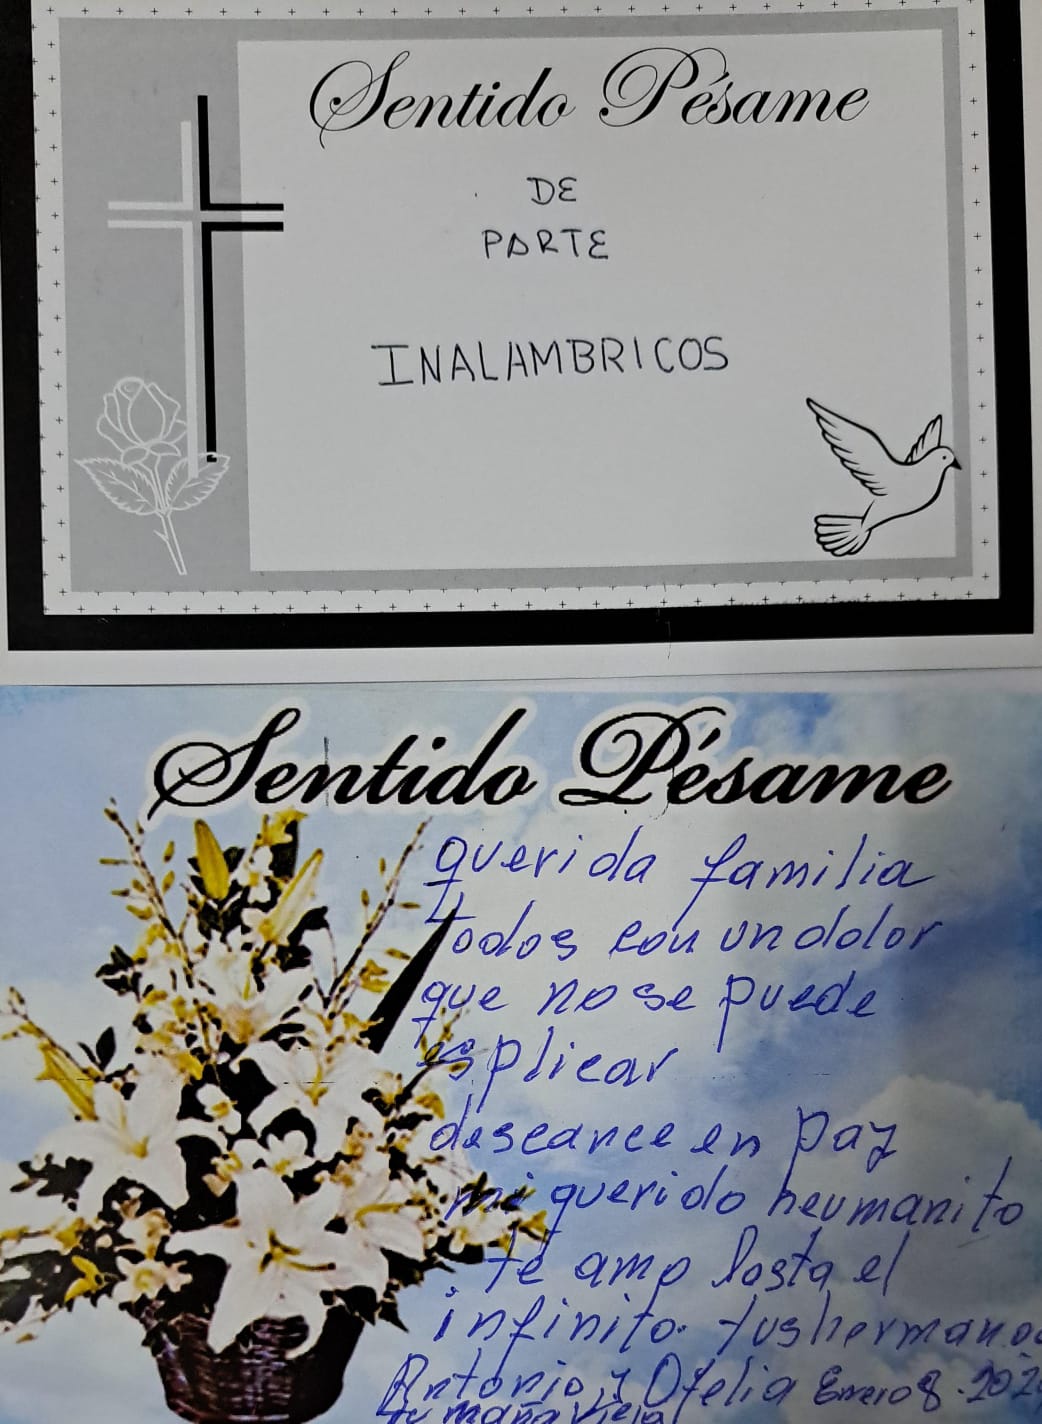 Sentido Pésame
DE
PARTE
INALAMBRICOS
Sentido Pésame
querida familia
todos con un dolor
que no se puede
esplicar
descance en paz
mi querido heumanito
te amo hasta el
infinito. tus hermanos
Antonio y Ofelia Enero 8. 202
tu maña vieja